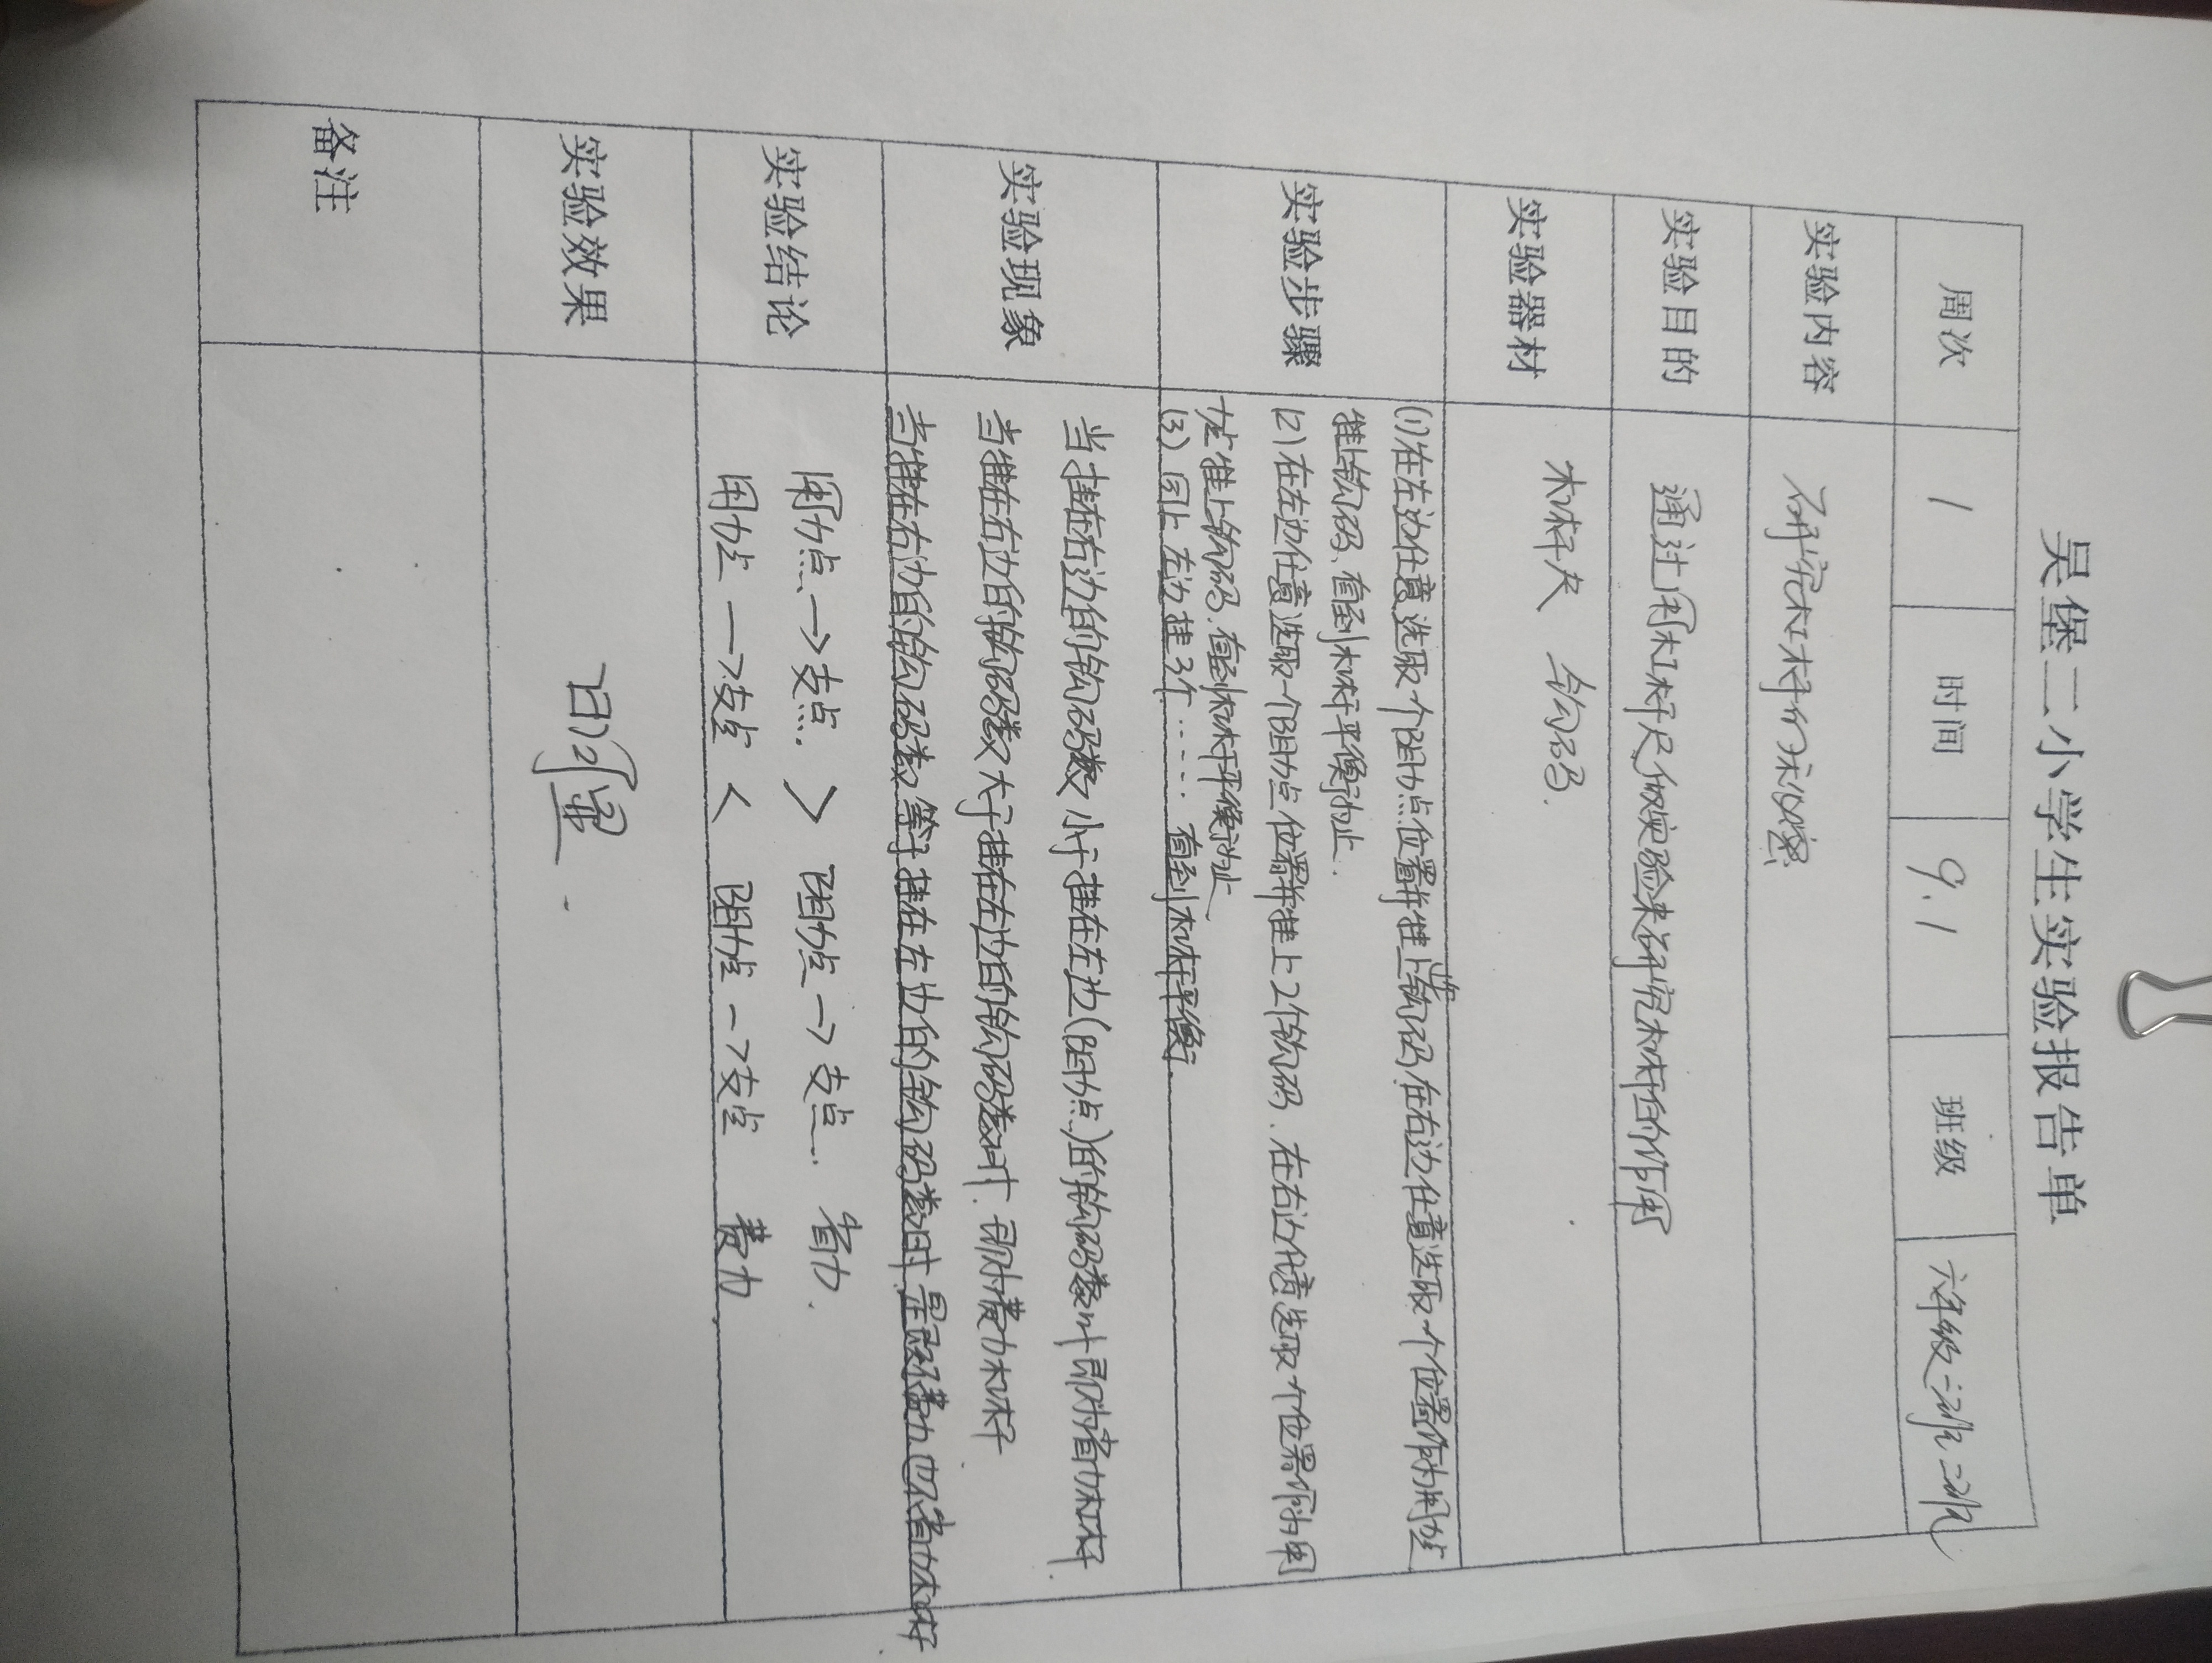 吴堡二小学生实验报告单
周次 1 时间 9.1 班级 六年级二班
实验内容 研究杠杆的秘密
实验目的 通过用杠杆尺做实验来研究杠杆的作用
实验器材 杠杆尺 钩码.
实验步骤 (1)在左边任意选取一个阻力点位置并挂上1个钩码在右边任意选取一个位置作为用力点
挂上钩码、直到杠杆平衡为止.
(2)在左边任意选取一个阻力点位置并挂上2个钩码、在右边任意选取一个位置作为用
力点挂上钩码.直到杠杆平衡为止
(3)同上 左边挂3个…… 直到杠杆平衡.
实验现象 当挂在右边的钩码数小于挂在左边(阻力点)的钩码数时 即为省力杠杆
当挂在右边的钩码数大于挂在左边的钩码数时、即为费力杠杆
当挂在右边的钩码数等于挂在左边的钩码数时 是既不费力也不省力杠杆
实验结论 用力点→支点 > 阻力点→支点. 省力.
用力点→支点 < 阻力点→支点 费力
实验效果 明显.
备注